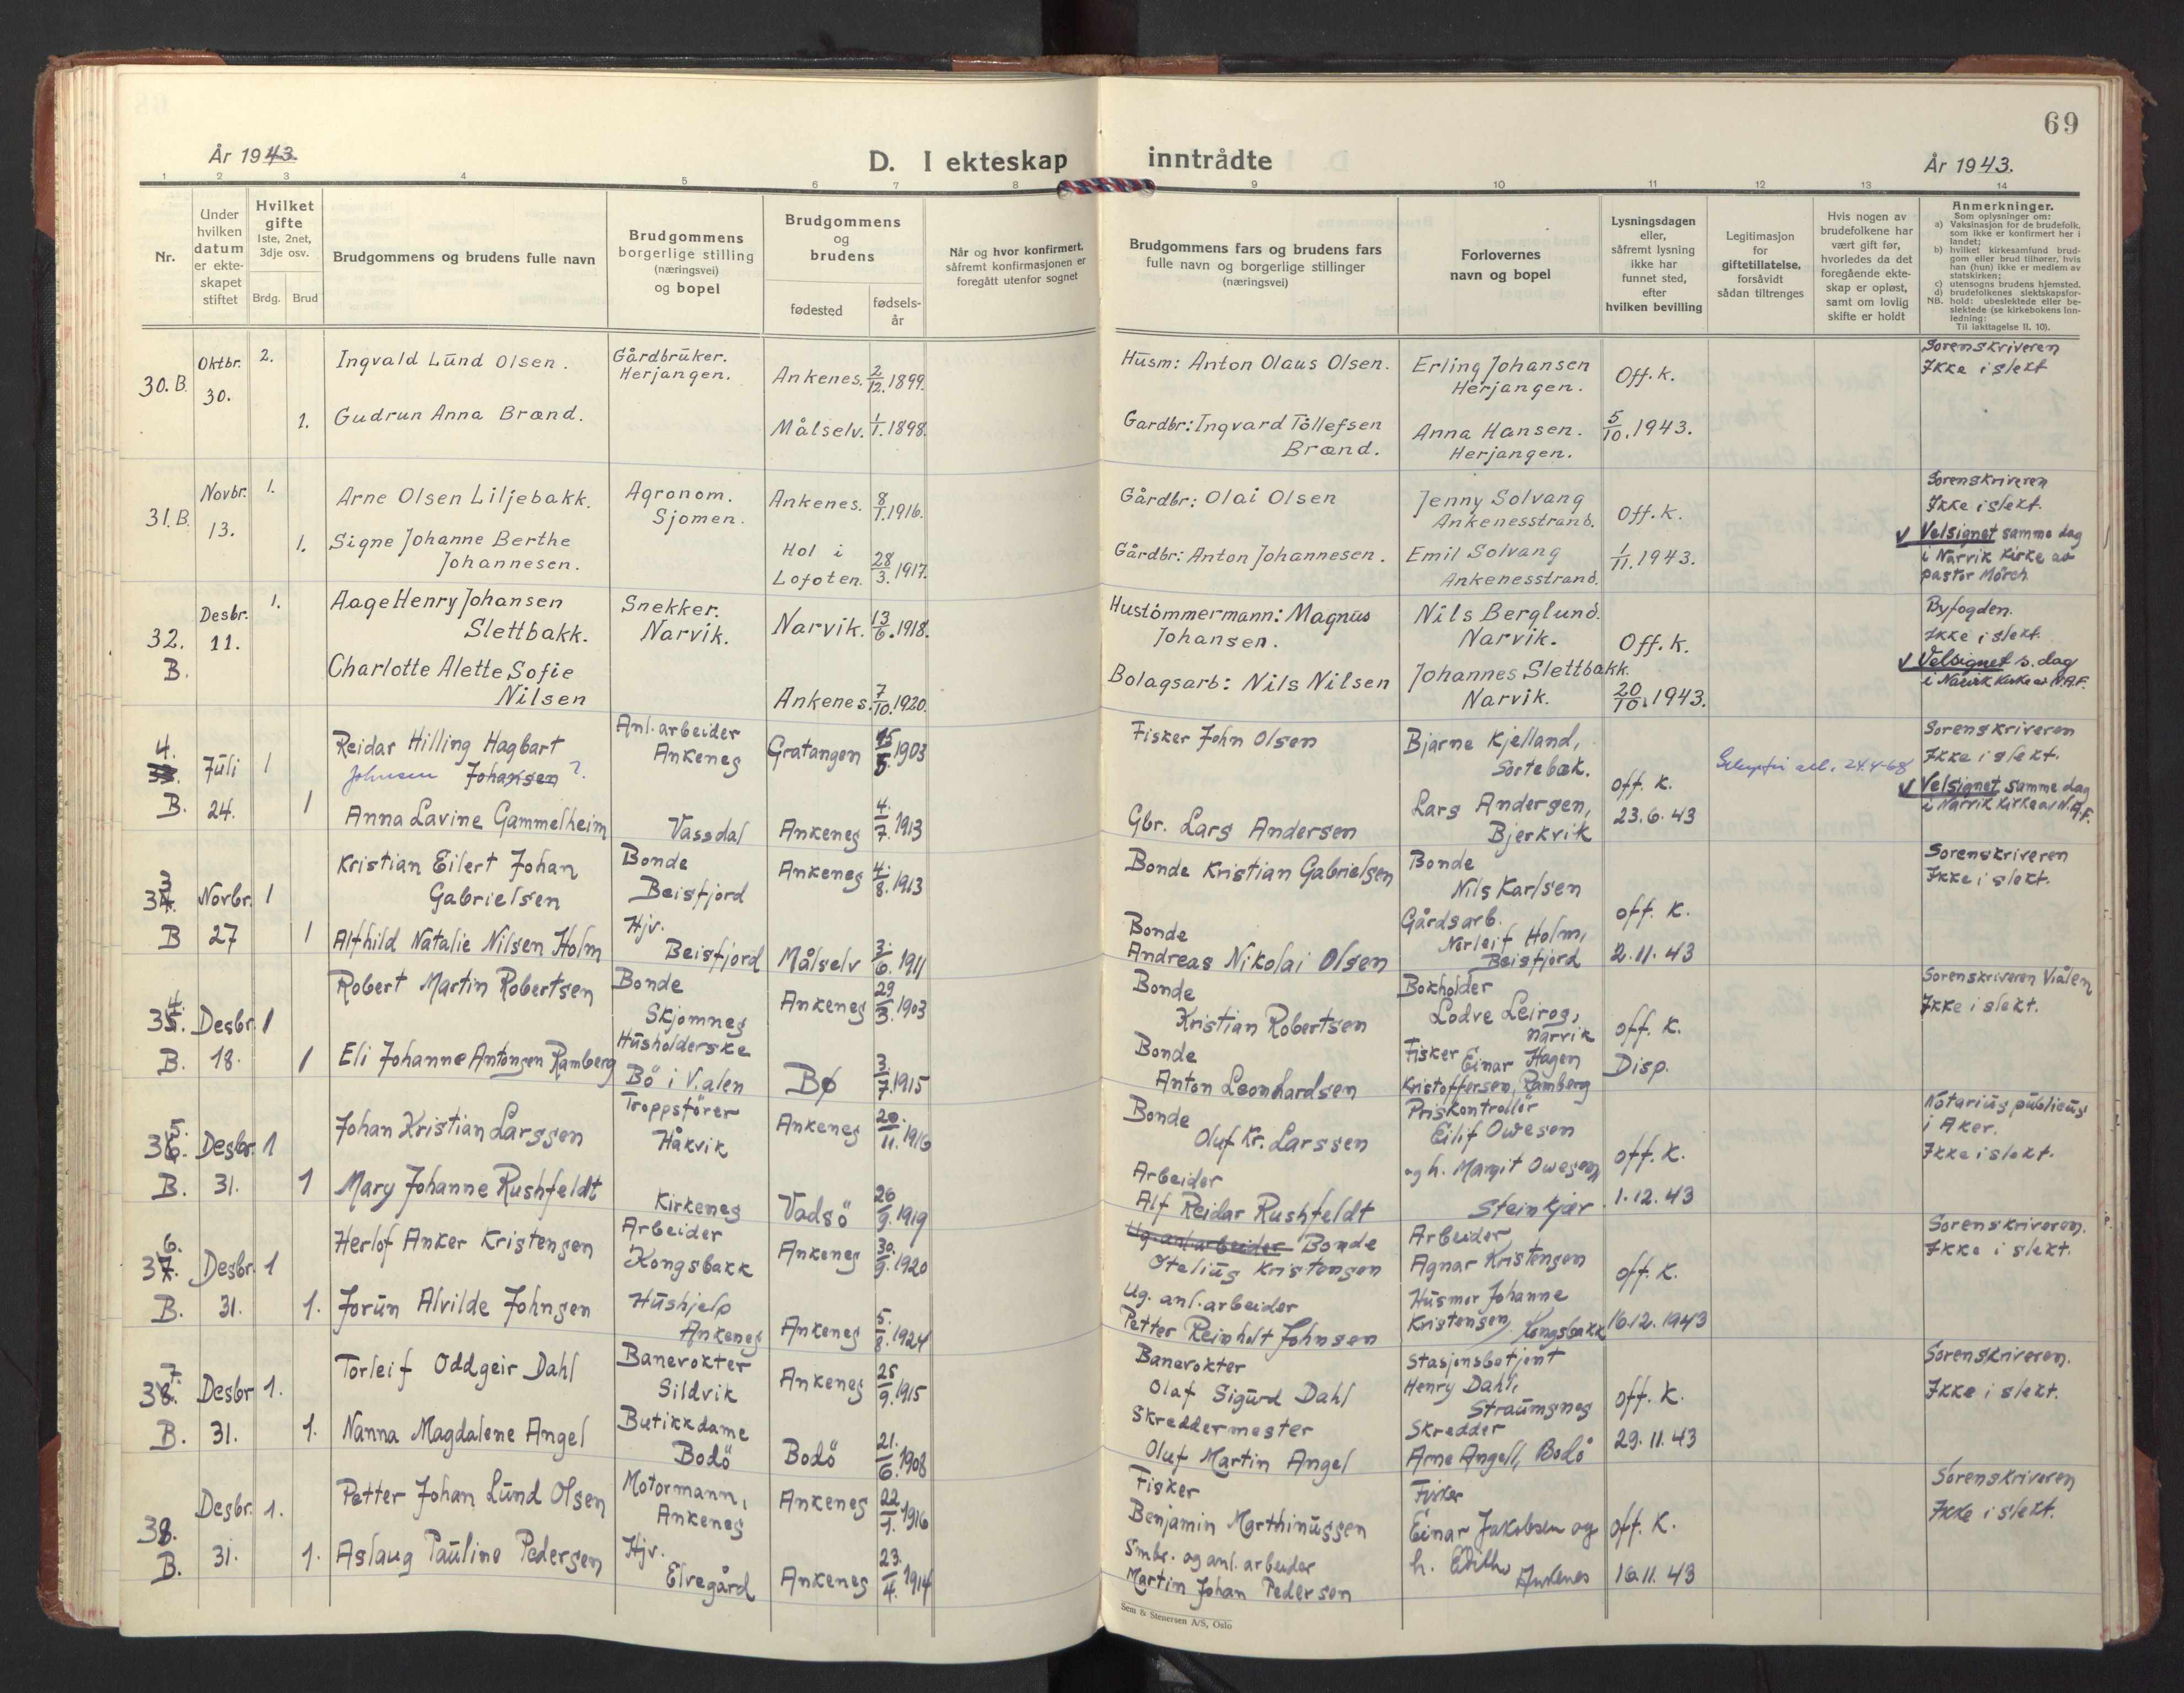 69
År 1943.
D. I ekteskap inntrådte
År 1943.
1 2 3 4 5 6 7 8 9 10 11 12 13 14
Nr.
Under hvilken datum er ekteskapet stiftet
Hvilket gifte
1ste, 2net, 3dje osv.
Brdg. Brud
Brudgommens og brudens fulle navn
Brudgommens borgerlige stilling (næringsvei) og bopel
Brudgommens og brudens
fødested
fødselsår
Når og hvor konfirmert, såfremt konfirmasjonen er foregått utenfor sognet
Brudgommens fars og brudens fars fulle navn og borgerlige stillinger (næringsvei)
Forlovernes navn og bopel
Lysningsdagen eller, såfremt lysning ikke har funnet sted, efter hvilken bevilling
Legitimasjon for giftetillatelse, forsåvidt sådan tiltrenges
Hvis nogen av brudefolkene har vært gift før, hvorledes da det foregående ekteskap er opløst, samt om lovlig skifte er holdt
Anmerkninger.
Som oplysninger om:
a) Vaksinasjon for de brudefolk, som ikke er konfirmert her i landet;
b) hvilket kirkesamfund brudgom eller brud tilhører, hvis han (hun) ikke er medlem av statskirken;
c) utensogns brudens hjemsted.
d) brudefolkenes slektskapsforhold: ubeslektede eller beslektede (se kirkebokens Innledning:
NB.
Til iakttagelse II. 10).
30.B. Oktbr. 30. 2. Ingvald Lund Olsen. Gårdbruker. Herjangen. Ankenes. 2/12. 1899. Husm: Anton Olaus Olsen. Erling Johansen Herjangen. Off. k. Sorenskriveren Ikke i slekt
1. Gudrun Anna Brænd. Målselv. 1/1. 1898. Gardbr: Ingvard Tollefsen Brænd. Anna Hansen. Herjangen. 5/10. 1943.
31.B. Novbr. 13. 1. Arne Olsen Liljebakk. Agronom. Sjomen. Ankenes. 8/1. 1916. Gårdbr: Olai Olsen Jenny Solvang Ankenesstrand. Off. k. Sorenskriveren Ikke i slekt.
1. Signe Johanne Berthe Johannesen. Hol i Lofoten. 28/3. 1917. Gårdbr: Anton Johannesen. Emil Solvang Ankenesstrand. 1/11. 1943. Velsignet samme dag i Narvik Kirke av pastor Mörch
32. B. Desbr. 11. 1. Aage Henry Johansen Slettbakk. Snekker. Narvik. Narvik. 13/6. 1918. Hustömmermann: Magnus Johansen. Nils Berglund. Narvik. Off. k. Byfogden. Ikke i slekt.
Charlotte Alette Sofie Nilsen Ankenes. 7/10. 1920. Bolagsarb: Nils Nilsen Johannes Slettbakk. Narvik. 20/10. 1943. Velsignet s. dag i Narvik Kirke av N.A.F.
4. 33. B. Juli 24. 1 Reidar Hilling Hagbart Johnsen Johansen ? Anl. arbeider Ankenes Gratangen 15/5 1903 Fisker John Olsen Bjarne Kjelland, Sørtebæk. off. K. 24.4-68 Sorenskriveren Ikke i slekt.
1 Anna Lavine Gammelheim Vassdal Ankenes 4/7. 1913 Gbr. Lars Andersen Lars Andersen, Bjerkvik 23.6.43 Velsignet samme dag i Narvik kirke av N.A.F.
33. B Novbr. 27 1 Kristian Eilert Johan Gabrielsen Bonde Beisfjord Ankenes 4/8. 1913 Bonde Kristian Gabrielsen Bonde Nils Karlsen off. K. Sorenskriveren Ikke i slekt.
1 Alfhild Natalie Nilsen Holm Hjv. Beisfjord Målselv 3/6. 1911 Bonde Andreas Nikolai Olsen Gårdsarb. Norleif Holm, Beisfjord 2.11.43
34. B. Desbr. 18. 1 Robert Martin Robertsen Bonde Skjomnes Ankenes 29/3. 1903 Bonde Kristian Robertsen Bokholder Lodve Leirog, Narvik off. K. Sorenskriveren Viålen Ikke i slekt.
1 Eli Johanne Antonsen Ramberg Husholderske Bö i V.alen Bø 3/7. 1915 Bonde Anton Leonhardsen Fisker Einar Hagen Kristoffersen, Ramberg Disp.
35. B. Desbr. 31. 1 Johan Kristian Larssen Troppsförer Håkvik Ankenes 20/11. 1916 Bonde Oluf Kr. Larssen Priskontrollör Eilif Owesen off. K. Notarius publicus i Aker. Ikke i slekt.
1 Mary Johanne Rushfeldt Kirkenes Vadsö 26/9. 1919 Arbeider Alf Reidar Rushfeldt og h. Margit Owesen Steinkjær 1.12.43
36. B. Desbr. 31. 1 Herlof Anker Kristensen Arbeider Kongsbakk Ankenes 30/9. 1920 Ug. anl. arbeider Bonde Otelius Kristensen Arbeider Agnar Kristensen off. K. Sorenskriveren. Ikke i slekt.
1. Jorun Alvilde Johnsen Hushjelp Ankenes Ankenes 5/8. 1924 Ug. anl. arbeider Petter Reinholt Johnsen Husmor Johanne Kristensen, Kongsbakk 16.12.1943
37. B. Desbr 31. 1. Torleif Oddgeir Dahl Banevokter Sildvik Ankenes 25/9. 1915 Banevokter Olaf Sigurd Dahl Stasjonsbetjent Henry Dahl, Straumsnes off. K. Sorenskriveren. Ikke i slekt.
1. Nanna Magdalene Angel Butikkdame Bodö Bodö 21/6. 1908 Skreddermester Oluf Martin Angel Skredder Arne Angell, Bodö 29.11.43
38. B. Desbr. 31. 1. Petter Johan Lund Olsen Motormann, Ankenes Ankenes 22/1. 1916 Fisker Benjamin Marthinussen Fisker Einar Jakobsen og off. K. Sorenskriveren Ikke i slekt.
1. Aslaug Pauline Pedersen Hjv. Elvegård Ankenes 23/4. 1914 Smbr. og anl. arbeider Martin Johan Pedersen h. Edith Ankenes 16.11.43
Sem & Stenersen A/S, Oslo